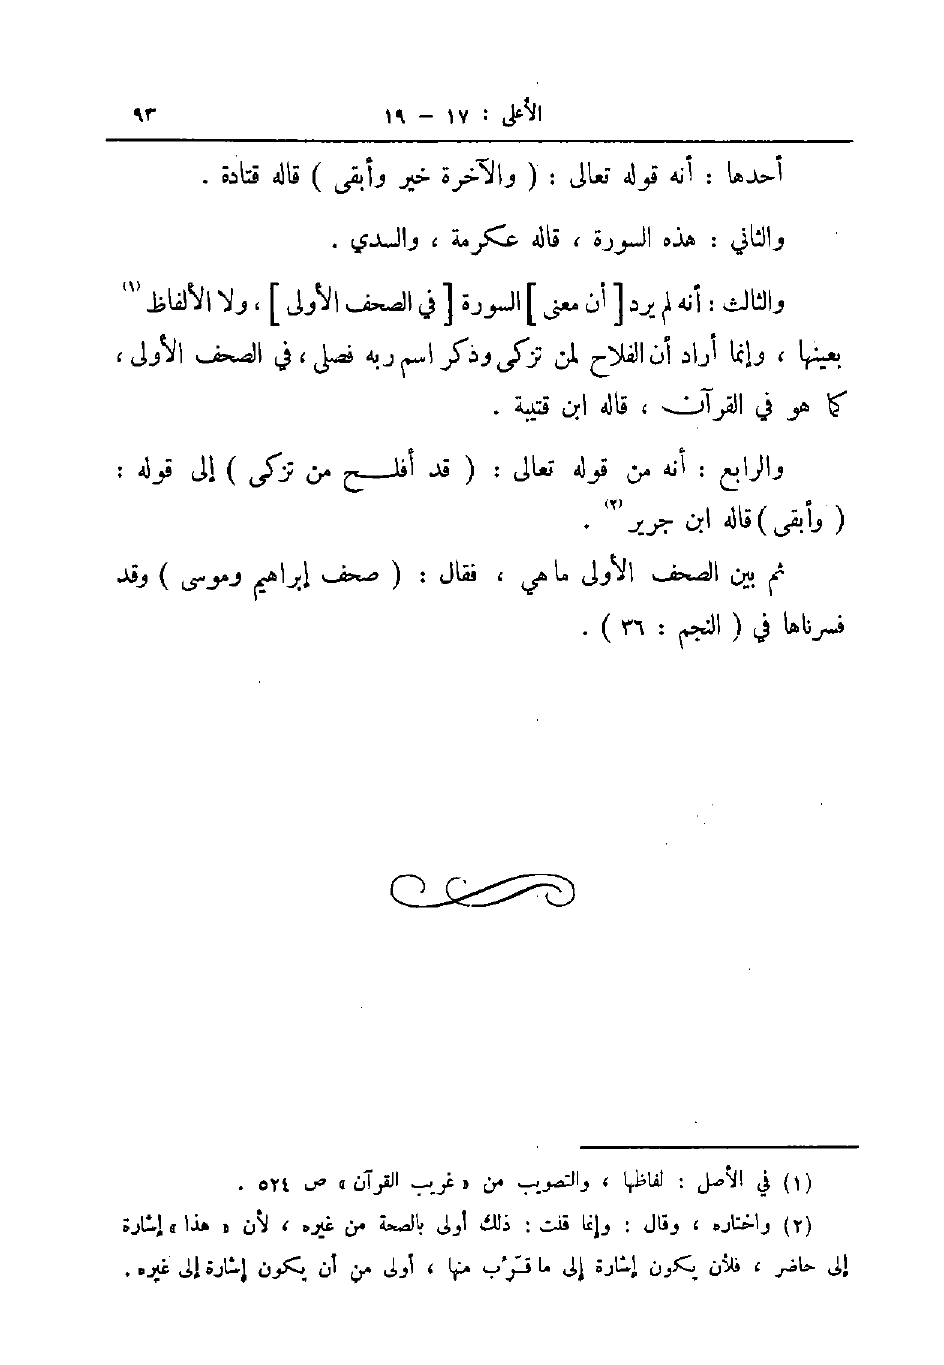 الأعلى : ١٧ – ١٩ ٩٣
أحدها : أنه قوله تعالى : ( والآخرة خير وأبقى ) قاله قتادة .
والثاني : هذه السورة ، قاله عكرمة ، والسدي .
والثالث : أنه لم يرد [ أن معنى ] السورة [ في الصحف الأولى ] ، ولا الألفاظ (١)
بعينها ، وإنما أراد أن الفلاح لمن تزكى وذكر اسم ربه فصلى ، في الصحف الأولى ،
كما هو في القرآن ، قاله ابن قتيبة .
والرابع : أنه من قوله تعالى : ( قد أفلـــح من تزكى ) إلى قوله :
( وأبقى ) قاله ابن جرير (٢) .
ثم بين الصحف الأولى ما هي ، فقال : ( صحف إبراهيم وموسى ) وقد
فسرناها في ( النجم : ٣٦ ) .
(١) في الأصل : لفاظها ، والتصويب من « غريب القرآن » ص ٥٢٤ .
(٢) واختاره ، وقال : وإنما قلت : ذلك أولى بالصحة من غيره ، لأن « هذا » إشارة
إلى حاضر ، فلأن يكون إشارة إلى ما قَرُب منها ، أولى من أن يكون إشارة إلى غيره .